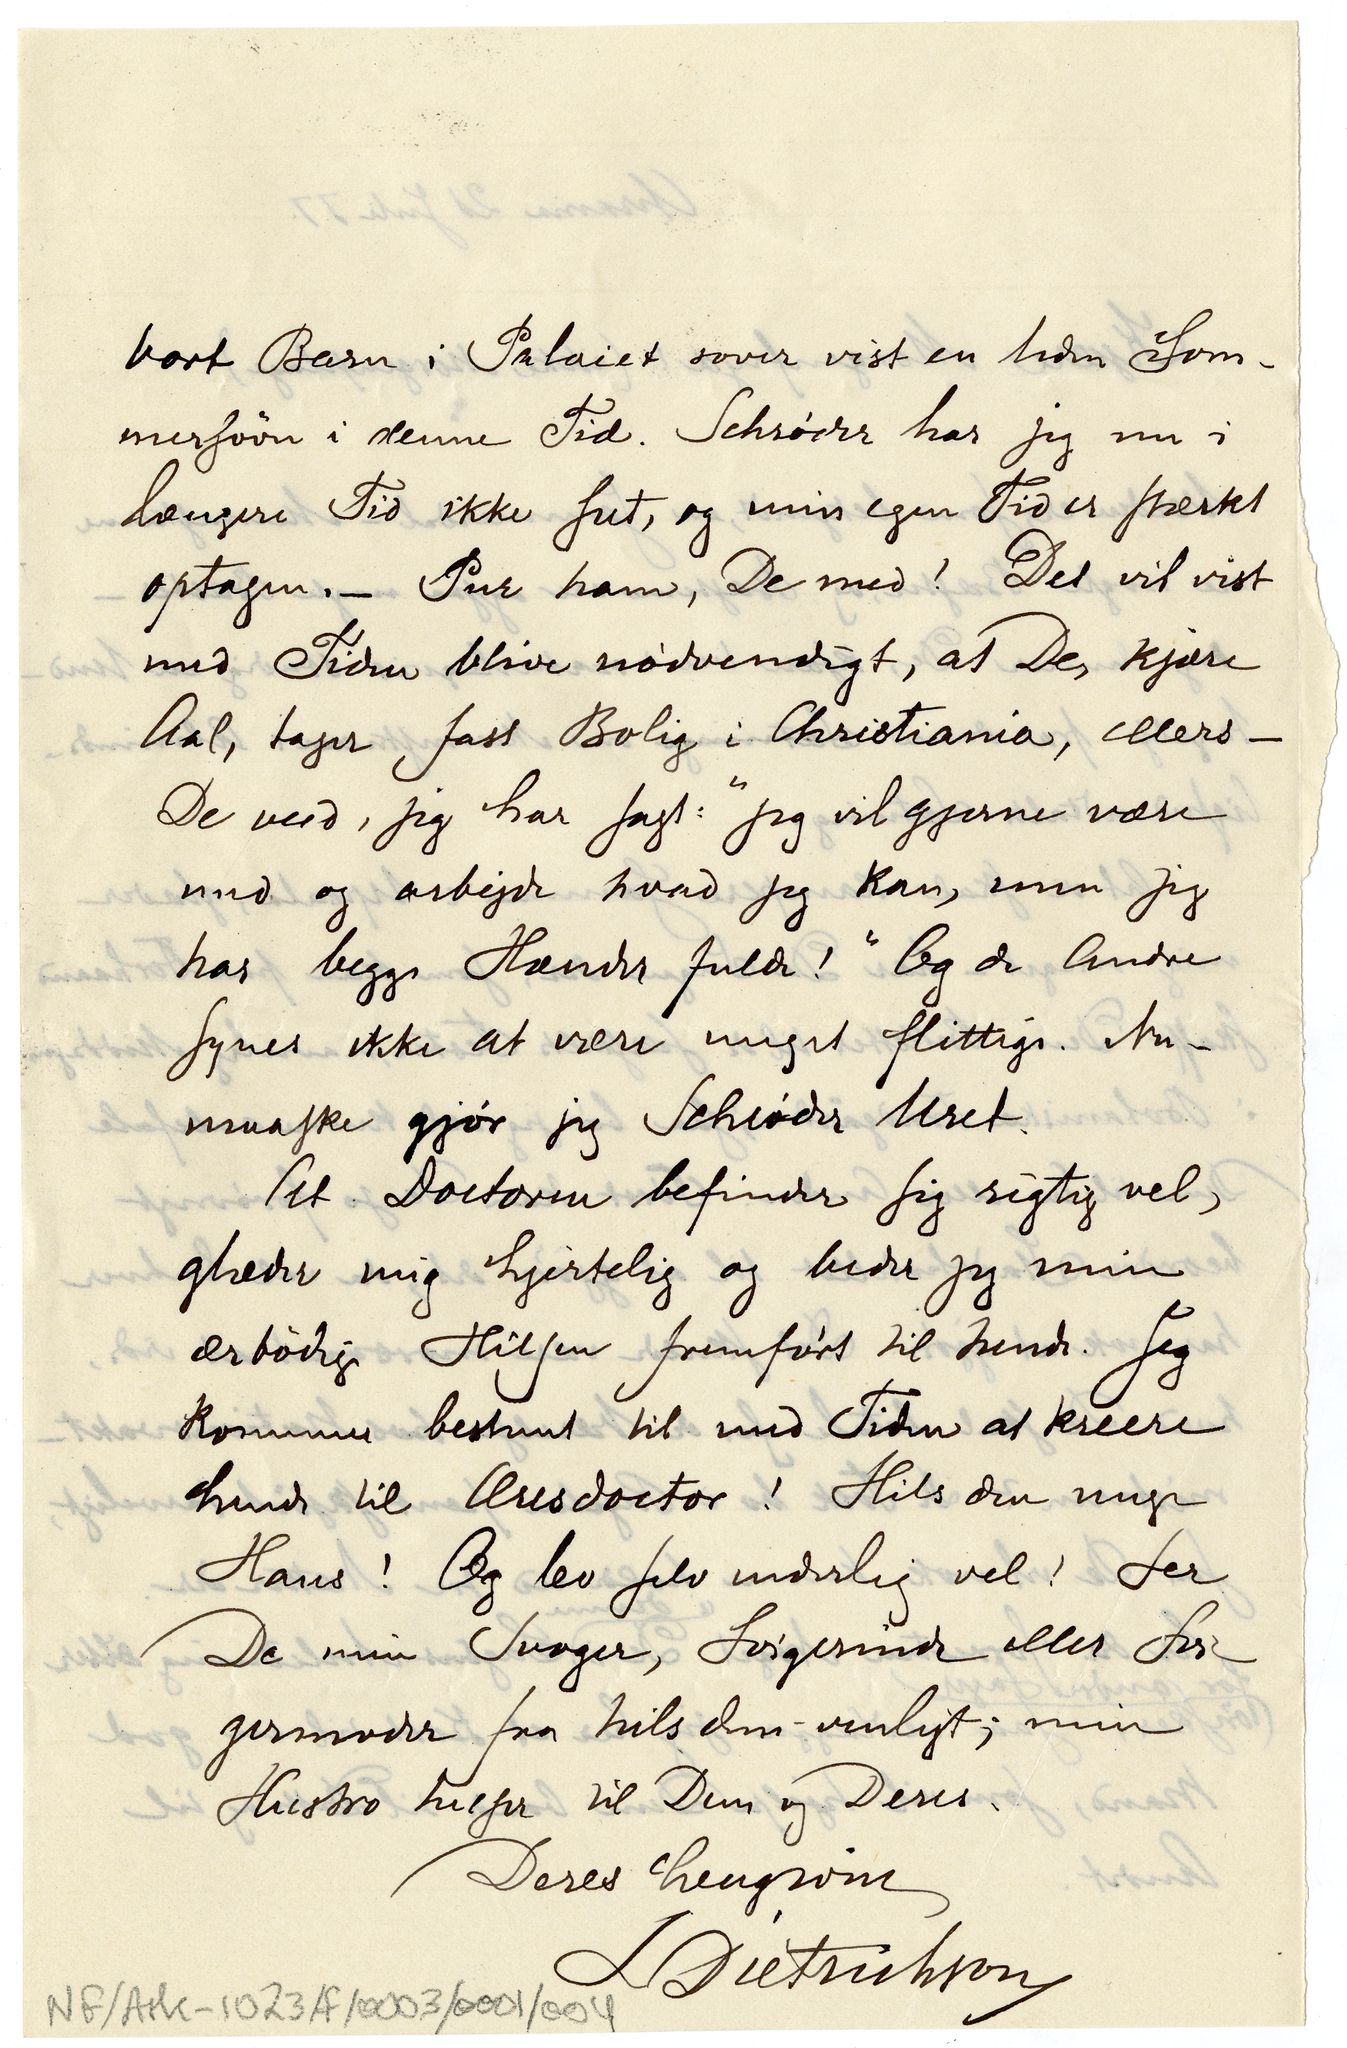 vort Barn i Palaiet sover vist en liden Som-
mersövn i denne Tid. Schrøder har jeg nu i
længere Tid ikke set, og min egen Tid er stærkt
optagen. — Pur ham, De med! Det vil vist
med Tiden blive nødvendigt, at De, kjære
Aal, tager fast Bolig i Christiania, ellers —
De veed, jeg har sagt: "jeg vil gjerne være
med og arbejde hvad jeg kan, men jeg
har begge Hænder fulde!" Og de Andre
synes ikke at være meget flittige. Nu —
maaske gjør jeg Schrøder Uret.
At Doctoren befinder sig rigtig vel,
glæder mig hjertelig og beder jeg min
ærbødige Hilsen fremført til hende. Jeg
kommer bestemt til med Tiden at kreere
hende til Æresdoctor! Hils den unge
Hans! Og lev selv inderlig vel! Ser
De min Svoger, Svigerinde eller Svi
germoder saa hils dem venligt; min
Hustro hilser til Dem og Deres.
Deres hengivne
L Dietrichson
NF/Ark-1023/F/0003/0001/004